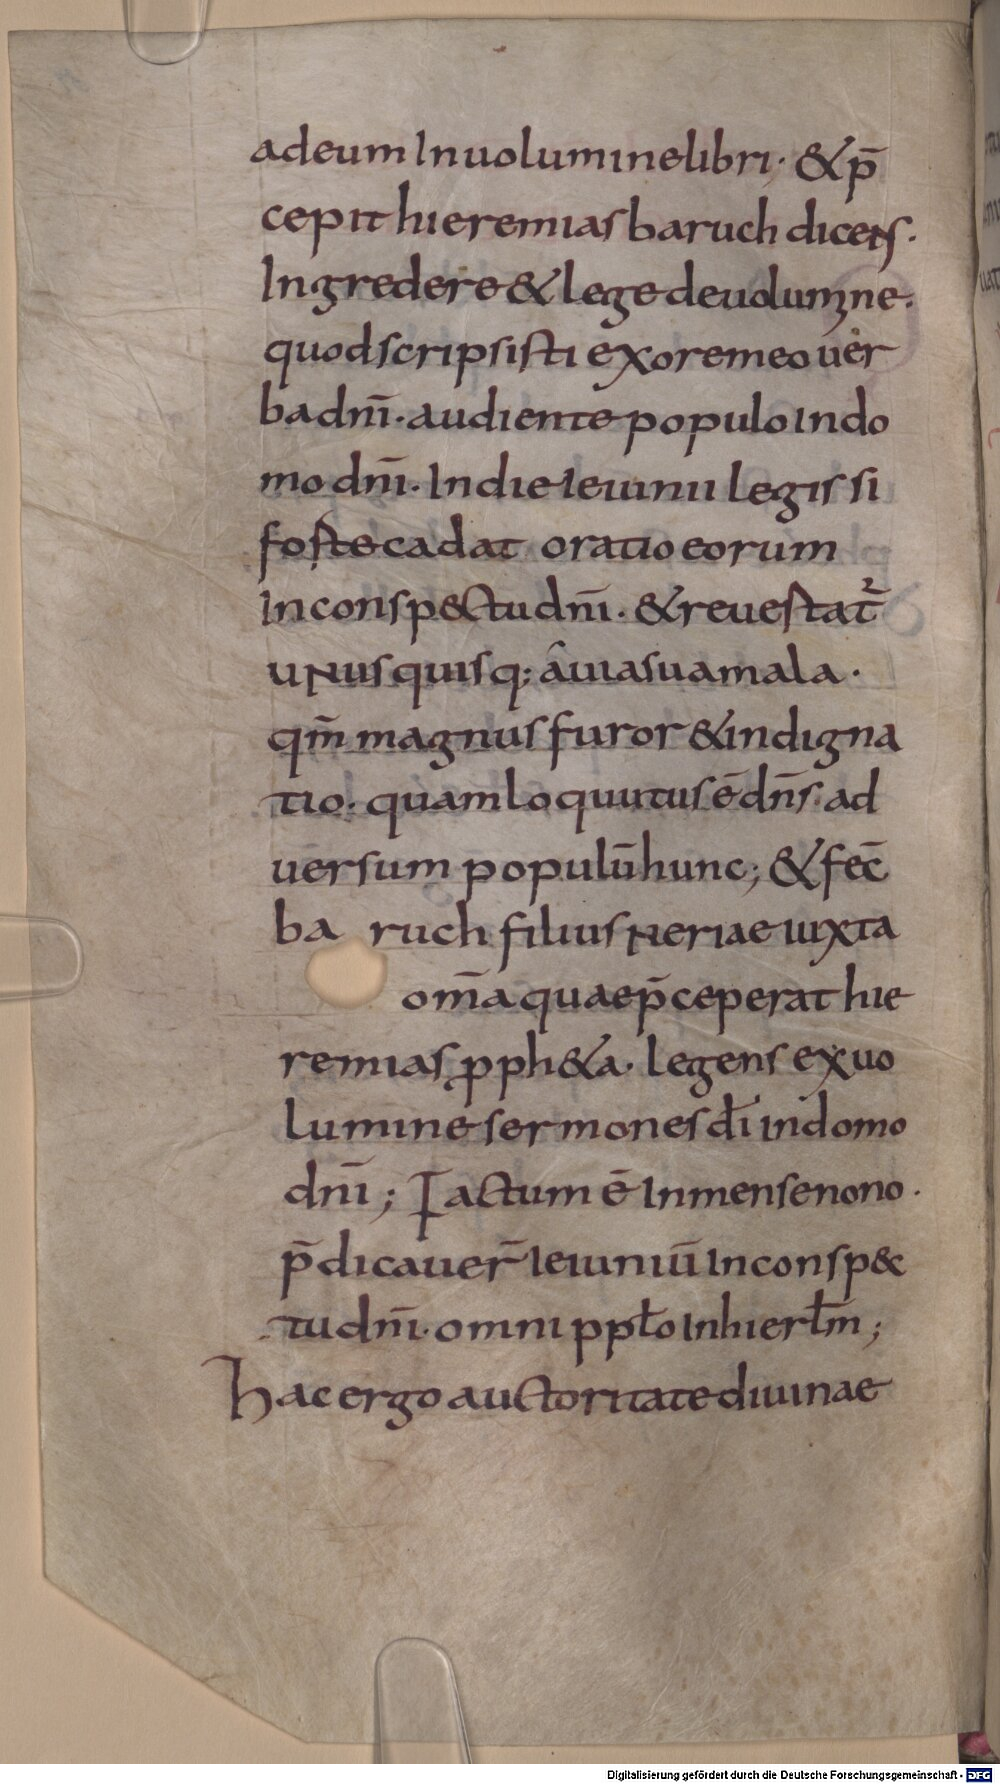 adeum Inuoluminelibri· & p̄
cepit hieremias baruch dicens·
Ingredere & lege deuolumine·
quodscripsisti exoremeo uer
ba dn̄i· audiente populo Indo
mo dn̄i· Indie Ieiunii legis si
forte cadat oratio eorum
Inconsp&tu dn̄i· & reuertat᷑
unusquisq; a uiasua mala·
qm̄ magnus furor & indigna
tio· quam loquutus ē dn̄s ad
uersum populū hunc; & fec̄
ba ruch filius Neriae iuxta
om̄a quae p̄ceperat hie
remias ꝓph&a· legens exuo
lumine sermones dı̄ in domo
dn̄i; Factum ē Inmense nono·
p̄dicauer̄ Ieiuniū Inconsp&
tu dn̄i· omni pplo Inhierlm̄;
Hac ergo auctoritate diuinae
Digitalisierung gefördert durch die Deutsche Forschungsgemeinschaft - DFG